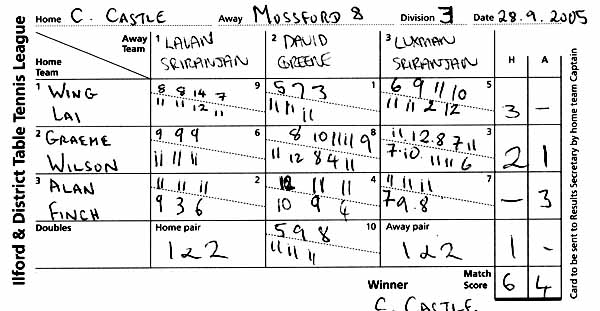 Ilford & District Table Tennis League
Home C. CASTLE Away MOSSFORD 8 Division 3 Date 28.9.2005
Away Team 1 LALAN 2 DAVID 3 LUXMAN H A
Home Team SRIRANJAN GREENE SRIRANJAN
1 WING 8 8 14 7 9 5 7 3 1 6 9 11 10 5
LAI 11 11 12 11 11 11 11 11 11 2 12 3 –
2 GRAEME 9 9 9 6 8 10 11 11 9 8 11 12.8 7 11 3
WILSON 11 11 11 11 12 8 4 11 7.10 11 11 6 2 1
3 ALAN 11 11 11 2 12 11 11 4 11 11 11 7
FINCH 9 3 6 10 9 4 7 9.8 – 3
Doubles Home pair 5 9 8 10 Away pair
1 & 2 11 11 11 1 & 2 1 -
Winner Match Score 6 4
C. CASTLE
Card to be sent to Results Secretary by home team Captain